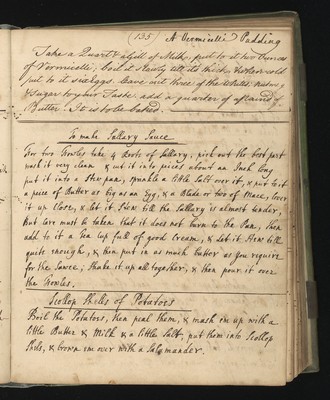 (135) A Vermicelli Pudding
Take a Quart & a gill of Milk, put to it two Ounces
of Vermicelli; boil it slowly till its thick, when cold
put to it six eggs. leave out three of the whites, nutmeg
& sugar to your Taste. add a quarter of a pound of
Butter. It is to be baked.
To make Sallary Sauce
For two Fowles take 4 Roots of Sallary, pick out the best part
wash it very clean & cut it into pieces about an Inch long
put it into a Stew pan, sprinkle a little Salt over it, & put to it
a piece of Butter as big as an Egg, & a Blade or two of Mace, cover
it up close, & let it Stew till the Sallary is almost tender,
But Care must be taken that it does not burn to the Pan, then
add to it a Tea Cup full of good Cream, & let it Stew till
quite enough, & then put in as much butter as you require
for the Sauce; Shake it up all together, & then pour it over
the Fowles.
Scollop Shells of Potatoes
Boil the Potatoes, then peal them, & mash em up with a
little Butter & Milk & a little Salt, put them into Scollop
Shels, & brown em over with a Salamander.